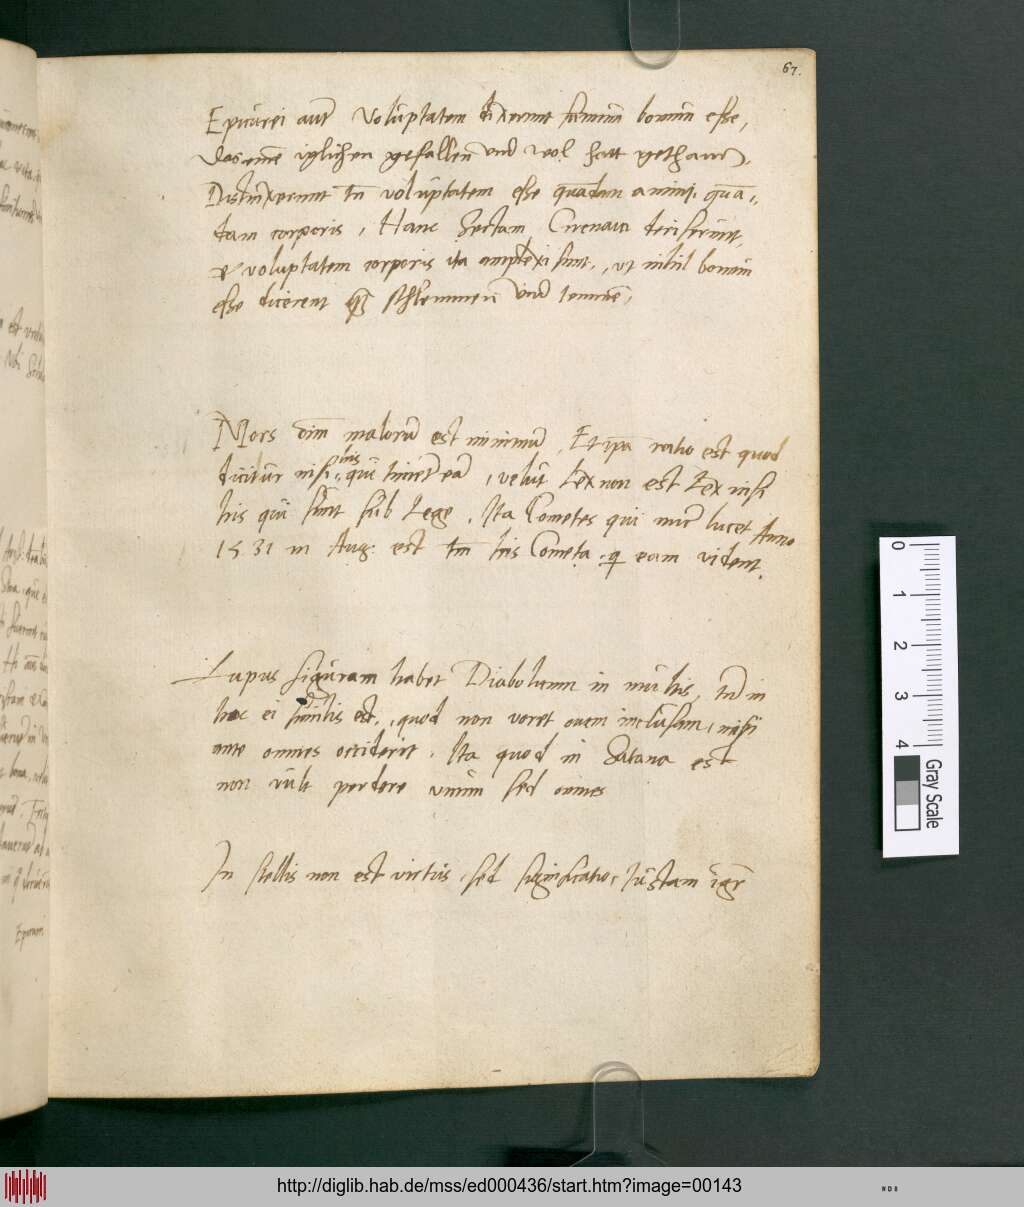 67.
Epicurei aut voluptatem dixerunt summum bonum esse,
das eine iglichen gefallen und wol hatt gethann.
Distinxerunt tn voluptatem esse quandam animi, quan-
dam corporis, Hanc Sectam Cirenaici deriserunt,
& voluptatem corporis ita amplexi sunt, ut nihil bonum
esse dicerent qs schlemmen und temmen,
Mors oim malorum est minimum, Et ipa ratio est quod
dicitur nisi his qui timet ea, velut Lex non est Lex nisi
his qui sunt sub Lege. Ita Cometes qui nuc lucet Anno
1531 in Aug: est tm his Cometa q eam vident.
Lupus figuram habet Diaboli in multis, tn in
hoc ei similis est, quod non voret ovem inclusam, nisi
ante omnes occiderit. Ita quod in Satana est
non vult perdere unum sed omnes
In stellis non est virtus, sed significatio,
Epicurei
http://diglib.hab.de/mss/ed000436/start.htm?image=00143
0
1
2
3
4
Gray Scale